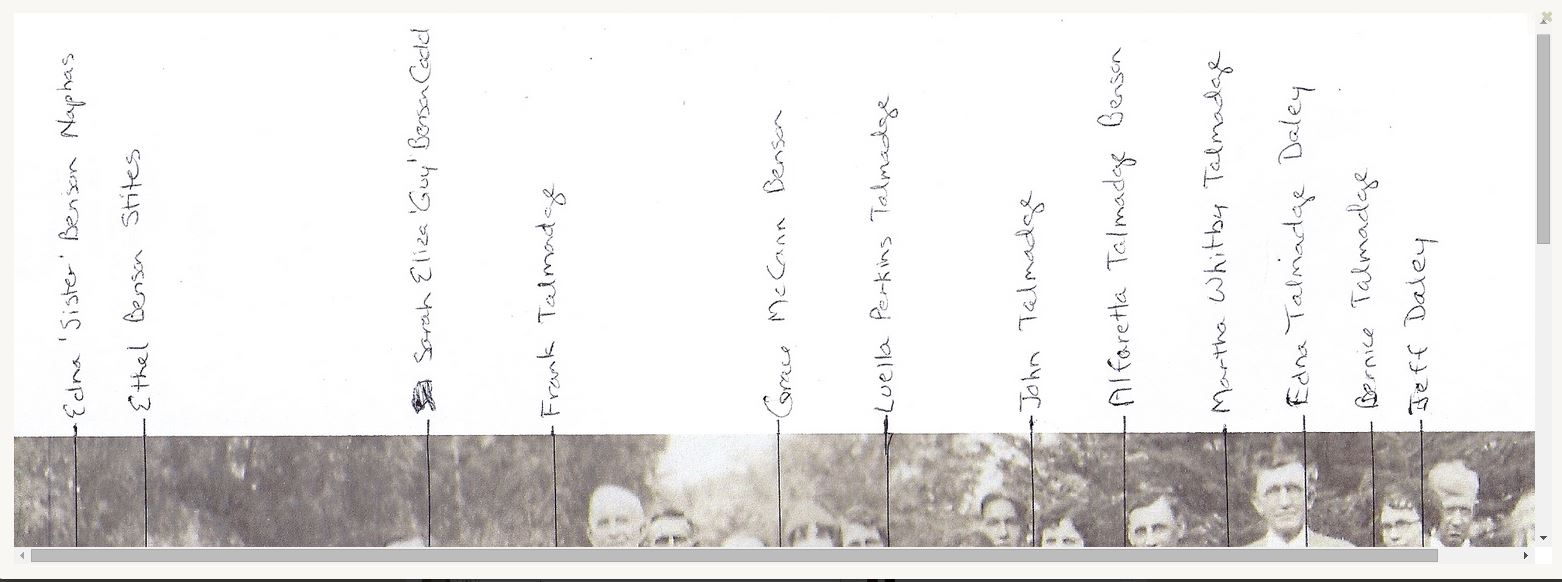 Edna 'Sister' Benson Naphas
Ethel Benson Stites
Sarah Eliza 'Guy' Benson Cadd
Frank Talmadge
Grace McCann Benson
Luella Perkins Talmadge
John Talmadge
Alfaretta Talmadge Benson
Martha Whitby Talmadge
Edna Talmadge Daley
Bernice Talmadge
Jeff Daley